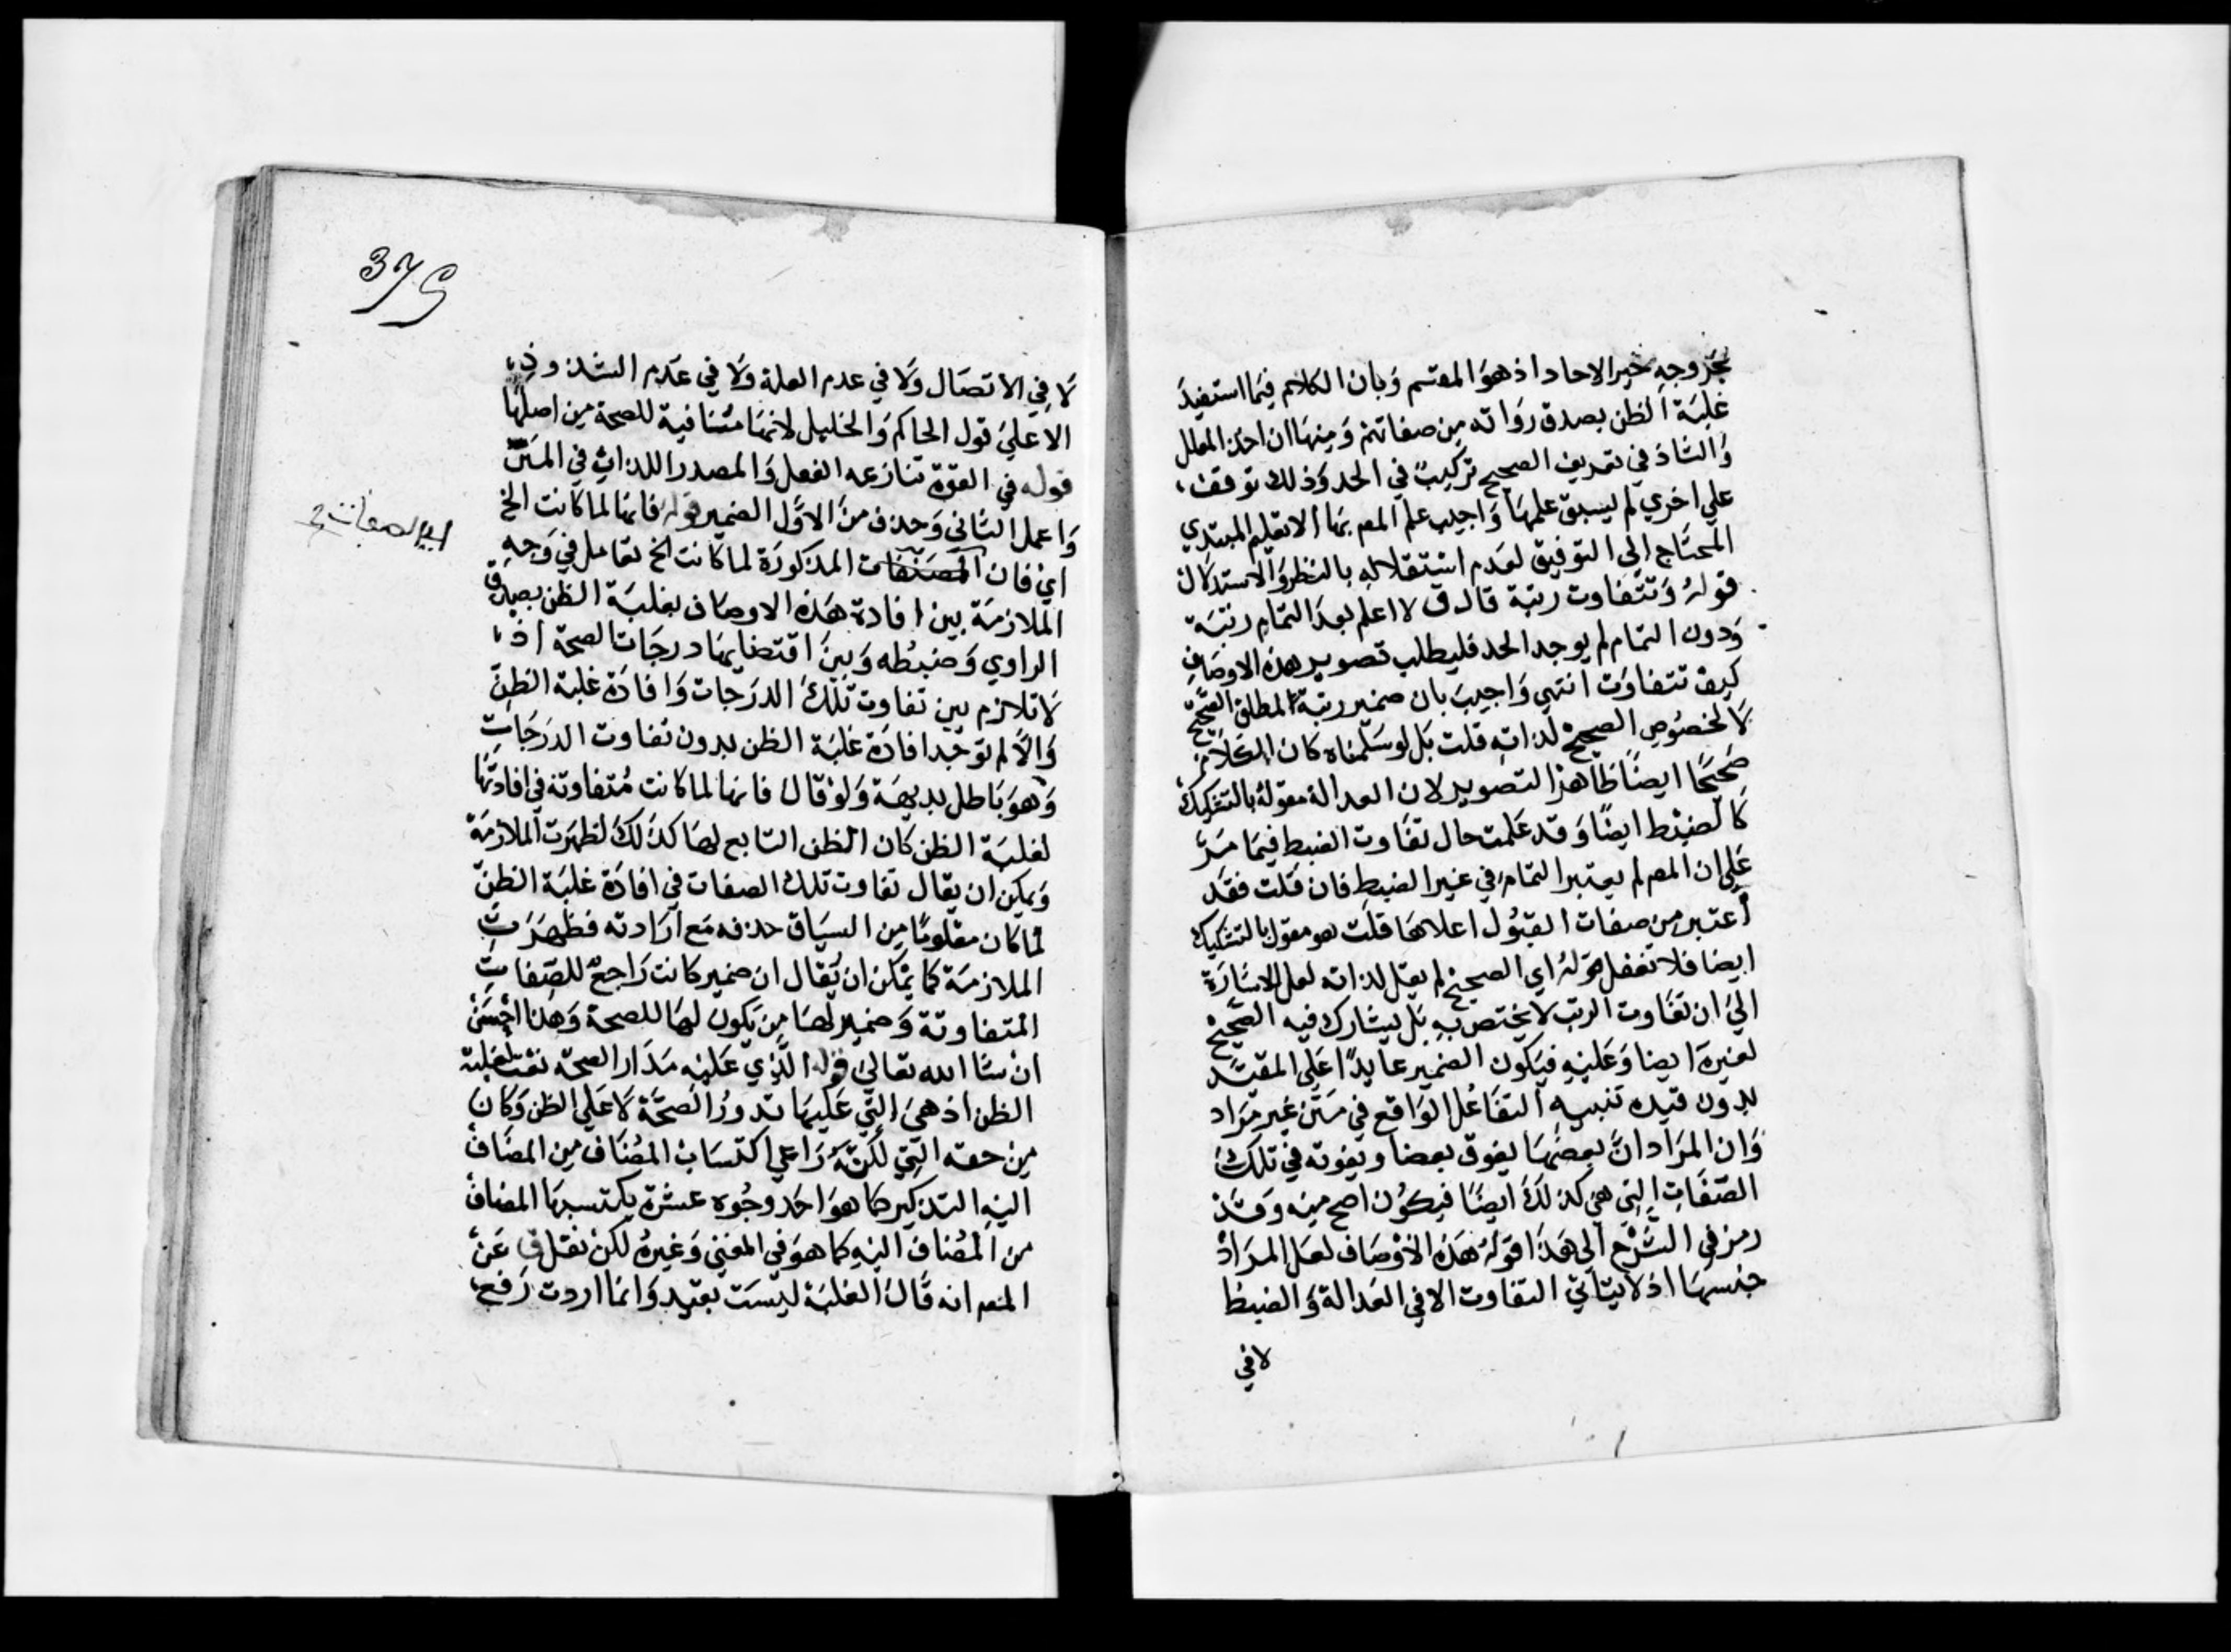 بخروجه بخبر الاحاد اذ هو المقسم وبان الكلام فيما استفيد
غلبة الظن بصدق رواته من صفاتهم ومنها ان اخذ المعلل
والشاذ في تعريف الصحيح تركيب في الحد وذلك توقف
علي اخري لم يسبق علمها واجيب علم المص بها الا تعليم المبتدي
المحتاج الي التوفيق لعدم استقلاله بالنظر والاستدلال
قوله وتتفاوت رتبة قال ق لا اعلم بعد التمام رتبة
ودون التمام لم يوجد الحد فليطلب تصوير هذه الاوصاف
كيف تتفاوت انتهي واجيب بان ضمير رتبة لمطلق الصحيح
لا لخصوص الصحيح لذاته قلت بل لو سلمناه كان الكلام
صحيحا ايضا ظاهر التصوير لان العدالة مقولة بالتشكيك
كالضبط ايضا وقد علمت حال تفاوت الضبط فيما مر
علي ان المص لم يعتبر التمام في غير الضبط فان قلت فقد
اعتبر من صفات القبول اعلاها قلت هو مقول بالتشكيك
ايضا فلا تغفل قوله اي الصحيح لم يقل لذاته لعل الاشارة
الي ان تفاوت الرتب لا يختص به بل يشارك فيه الصحيح
لغيره ايضا وعليه فيكون الضمير عايدا علي المقيد
بدون قيده تنبيه التفاعل الواقع في متن غير مراد
وان المراد ان بعضها يفوق بعضا ويفوته في تلك
الصفات التي هي كذلك ايضا فيكون اصح منه وقد
رمز في الشرح الي هذا قوله هذه الاوصاف لعل المراد
جنسها اذ لا يتاتي التفاوت الا في العدالة والضبط
لا في
375
لا في الاتصال ولا في عدم العلة ولا في عدم الشذوذ
الا علي قول الحاكم والخليل لانهما منافية للصحة من اصلها
قوله في القوة تنازعه الفعل والمصدر اللذان في المتن
واعمل الثاني وحذف من الاول الضمير قوله فانها لما كانت الخ
اي فان المصنفات المذكورة لما كانت الخ تعامل في وجه
اي الصفات
الملازمة بين افادة هذه الاوصاف بغلبة الظن بصدق
الراوي وضبطه وبين اقتضايها درجات الصحة اذ
لا تلازم بين تفاوت تلك الدرجات وافادة غلبة الظن
والا لم توجد افادة غلبة الظن بدون تفاوت الدرجات
وهو باطل بديهة ولو قال فانها لما كانت متفاوتة في افادتها
لغلبة الظن كان الظن التابع لها كذلك لظهرت الملازمة
ويمكن ان يقال تفاوت تلك الصفات في افادة غلبة الظن
لما كان معلوما من السياق حذفه مع ارادته فظهرت
الملازمة كما يمكن ان يقال ان ضمير كانت راجع للصفات
المتفاوتة وضمير لها من يكون لها للصحة وهذا احسن
ان شا الله تعالي قوله الذي عليه مدار الصحة نعت لغلبة
الظن اذ هي التي عليها تدور الصحة لا علي الظن وكان
من حقه التي لكنه راعي اكتساب المضاف من المضاف
اليه التذكير كما هو احد وجوه عشرة يكتسبها المضاف
من المضاف اليه كما هو في المغني وغيره لكن نقل ق عن
المص انه قال الغلبة ليست بقيد وانما اردت رفع